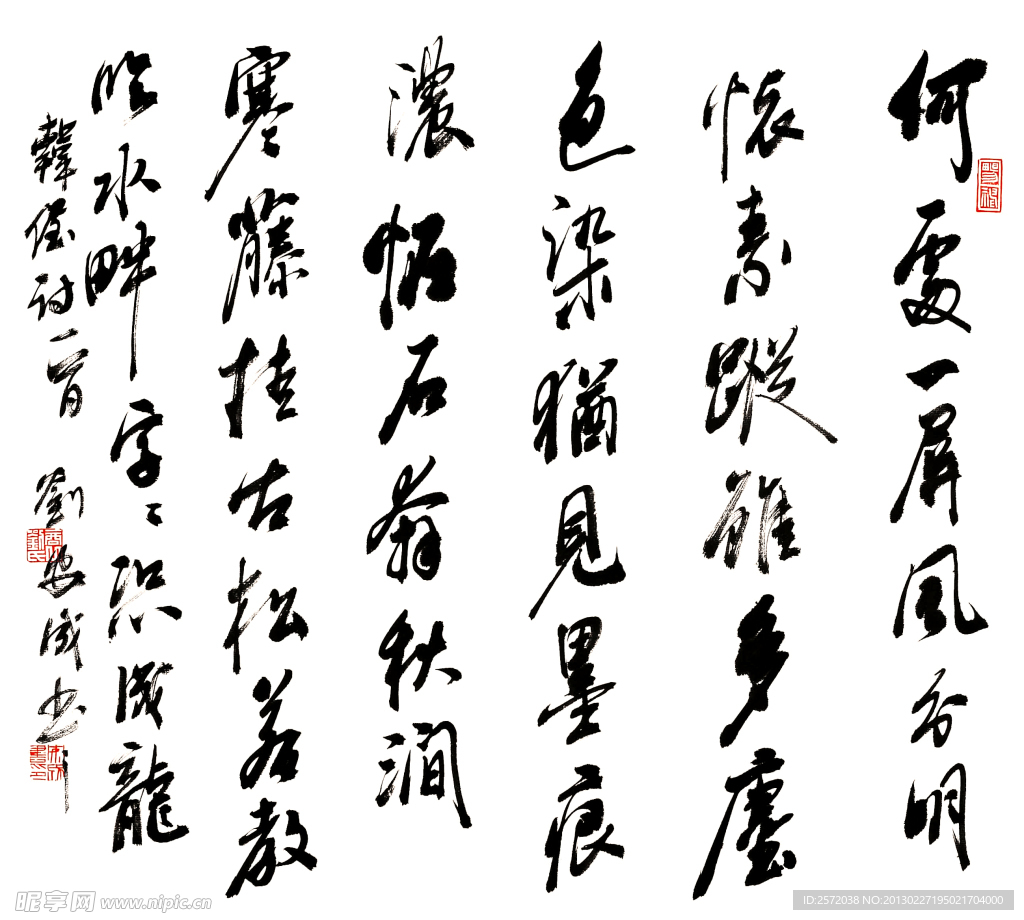 何處一屏風分明
懷素蹤雖多塵
色染猶見墨痕
濃恠石奔秋澗
寒藤挂古松若教
臨水畔字々恐成龍
韓偓詩一首 劉安成書
昵享网 www.nipic.cn
ID:2572038 NO:20130227195021704000